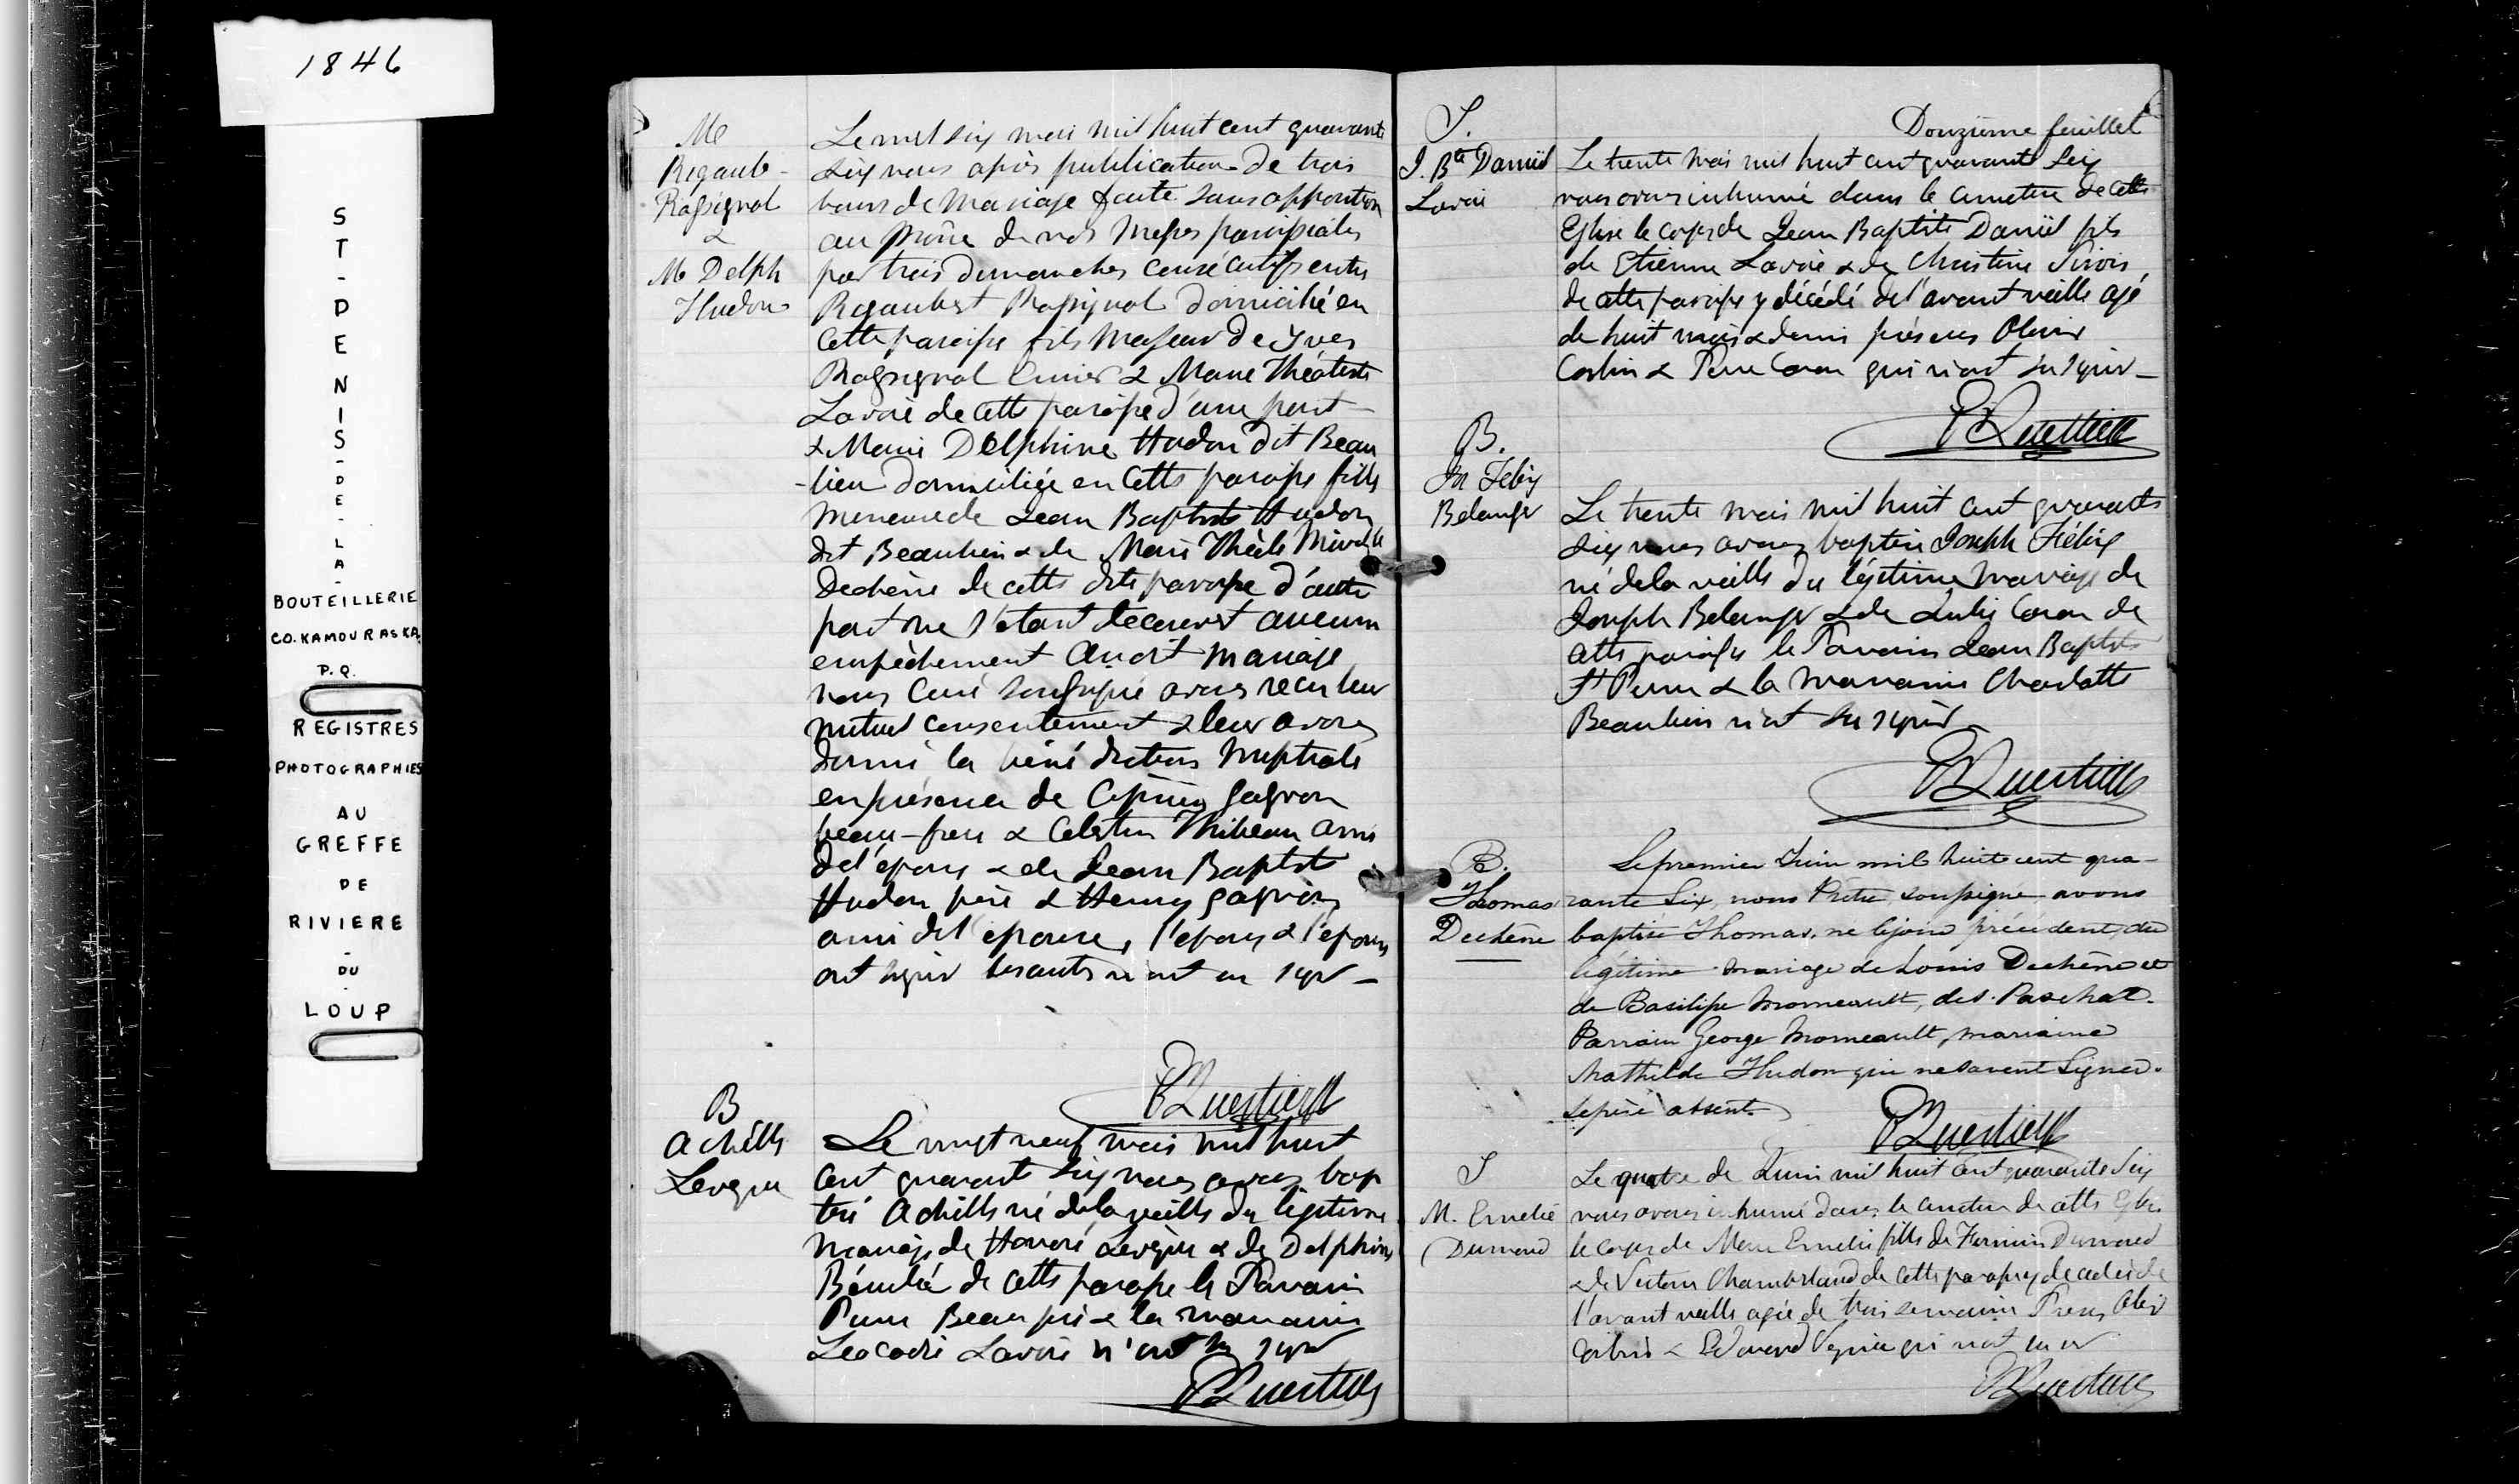 1846
ST-DENIS-DE-LA-
BOUTEILLERIE
CO. KAMOURASKA.
P.Q.
REGISTRES
PHOTOGRAPHIES
AU
GREFFE
DE
RIVIERE
-
DU
-
LOUP
M
Rigaube-
Rossignol
&
M Delph
Hudon
Le six mai mil huit cent quarante
six nous après publication de trois
bans de Mariage faite sans opposition
au prône de nos Messes paroissiales
par trois dimanches consécutifs entre
Rossignol domicilié en
cette paroisse fils Majeur de Yves
Rossignol & Marie Théotiste
Lavoie de cette paroisse d'une part
& Marie Delphine Hudon dit Beau
-lieu domiciliée en cette paroisse fille
mineure de Jean Baptiste Hudon
dit Beaulieu & de Marie Thècle Miville
Dechène de cette dite paroisse d'autre
part ne s'étant decouvert aucun
empêchement au dit mariage
nous Curé soussigné avons recu leur
mutuel consentement & leur avons
donné la bénédiction Nuptiale
en présence de Gagnon
beau-frere & Celestin Thibeau ami
de l'epoux & de Jean Baptiste
Hudon père & Henry Gagnon
ami de l'epouse, l'epoux & l'epouse
ont signé les autres n'ont su signer -
Quertier
B
Achille
Leveque
Le vingt neuf mai mil huit
cent quarante six nous avons bap
tisé Achille né de la veille du légitime
Mariage de Honoré Levèque & de Delphine
Bérubé de cette paroisse le Parrain
Pierre Beaupré & la marraine
Léocadie Lavoie n'ont su signer
Quertier
Douzième feuillet
S.
J. Bte Daniel
Lavoie
Le trente mai mil huit cent quarante six
nous avons inhumé dans le cimetiere de cette
Eglise le corps de Jean Baptiste Daniel fils
de Etienne Lavoie & de Christine Sirois
de cette paroisse y décédé de l'avant veille agé
de huit mois & demi présens Olivier
Corbin & Pierre Caron qui n'ont su signer -
Quertier
B.
Jos Félix
Belanger
Le trente mai mil huit cent quarante
six nous avons baptisé Joseph Félix
né de la veille du légitime mariage de
Joseph Belanger & de Julie Caron de
cette paroisse le Parrain Jean Baptiste
St Pierre & la marraine Charlotte
Beaulieu n'ont su signer
Quertier
B.
Thomas
Dechêne
Le premier Juin mil huit cent qua-
rante Six, nous Prêtre soussigné avons
baptisé Thomas, né le jour précédent, du
légitime mariage de Louis Dechêne et
de Basilisse Morneault, de S. Paschal.
Parrain George Morneault, marraine
Mathilde Hudon qui ne savent Signer.
le père absent
Quertier
S
M. Emelie
Dumond
Le quatre de Juin mil huit cent quarante Six
nous avons inhumé dans le cimetiere de cette Eglise
le corps de Marie Emelie fille de Firmin Dumond
& de Chamberland de cette paroisse y decedée de
l'avant veille agée de trois semaines
Corbin & Edouard qui n'ont su
Quertier